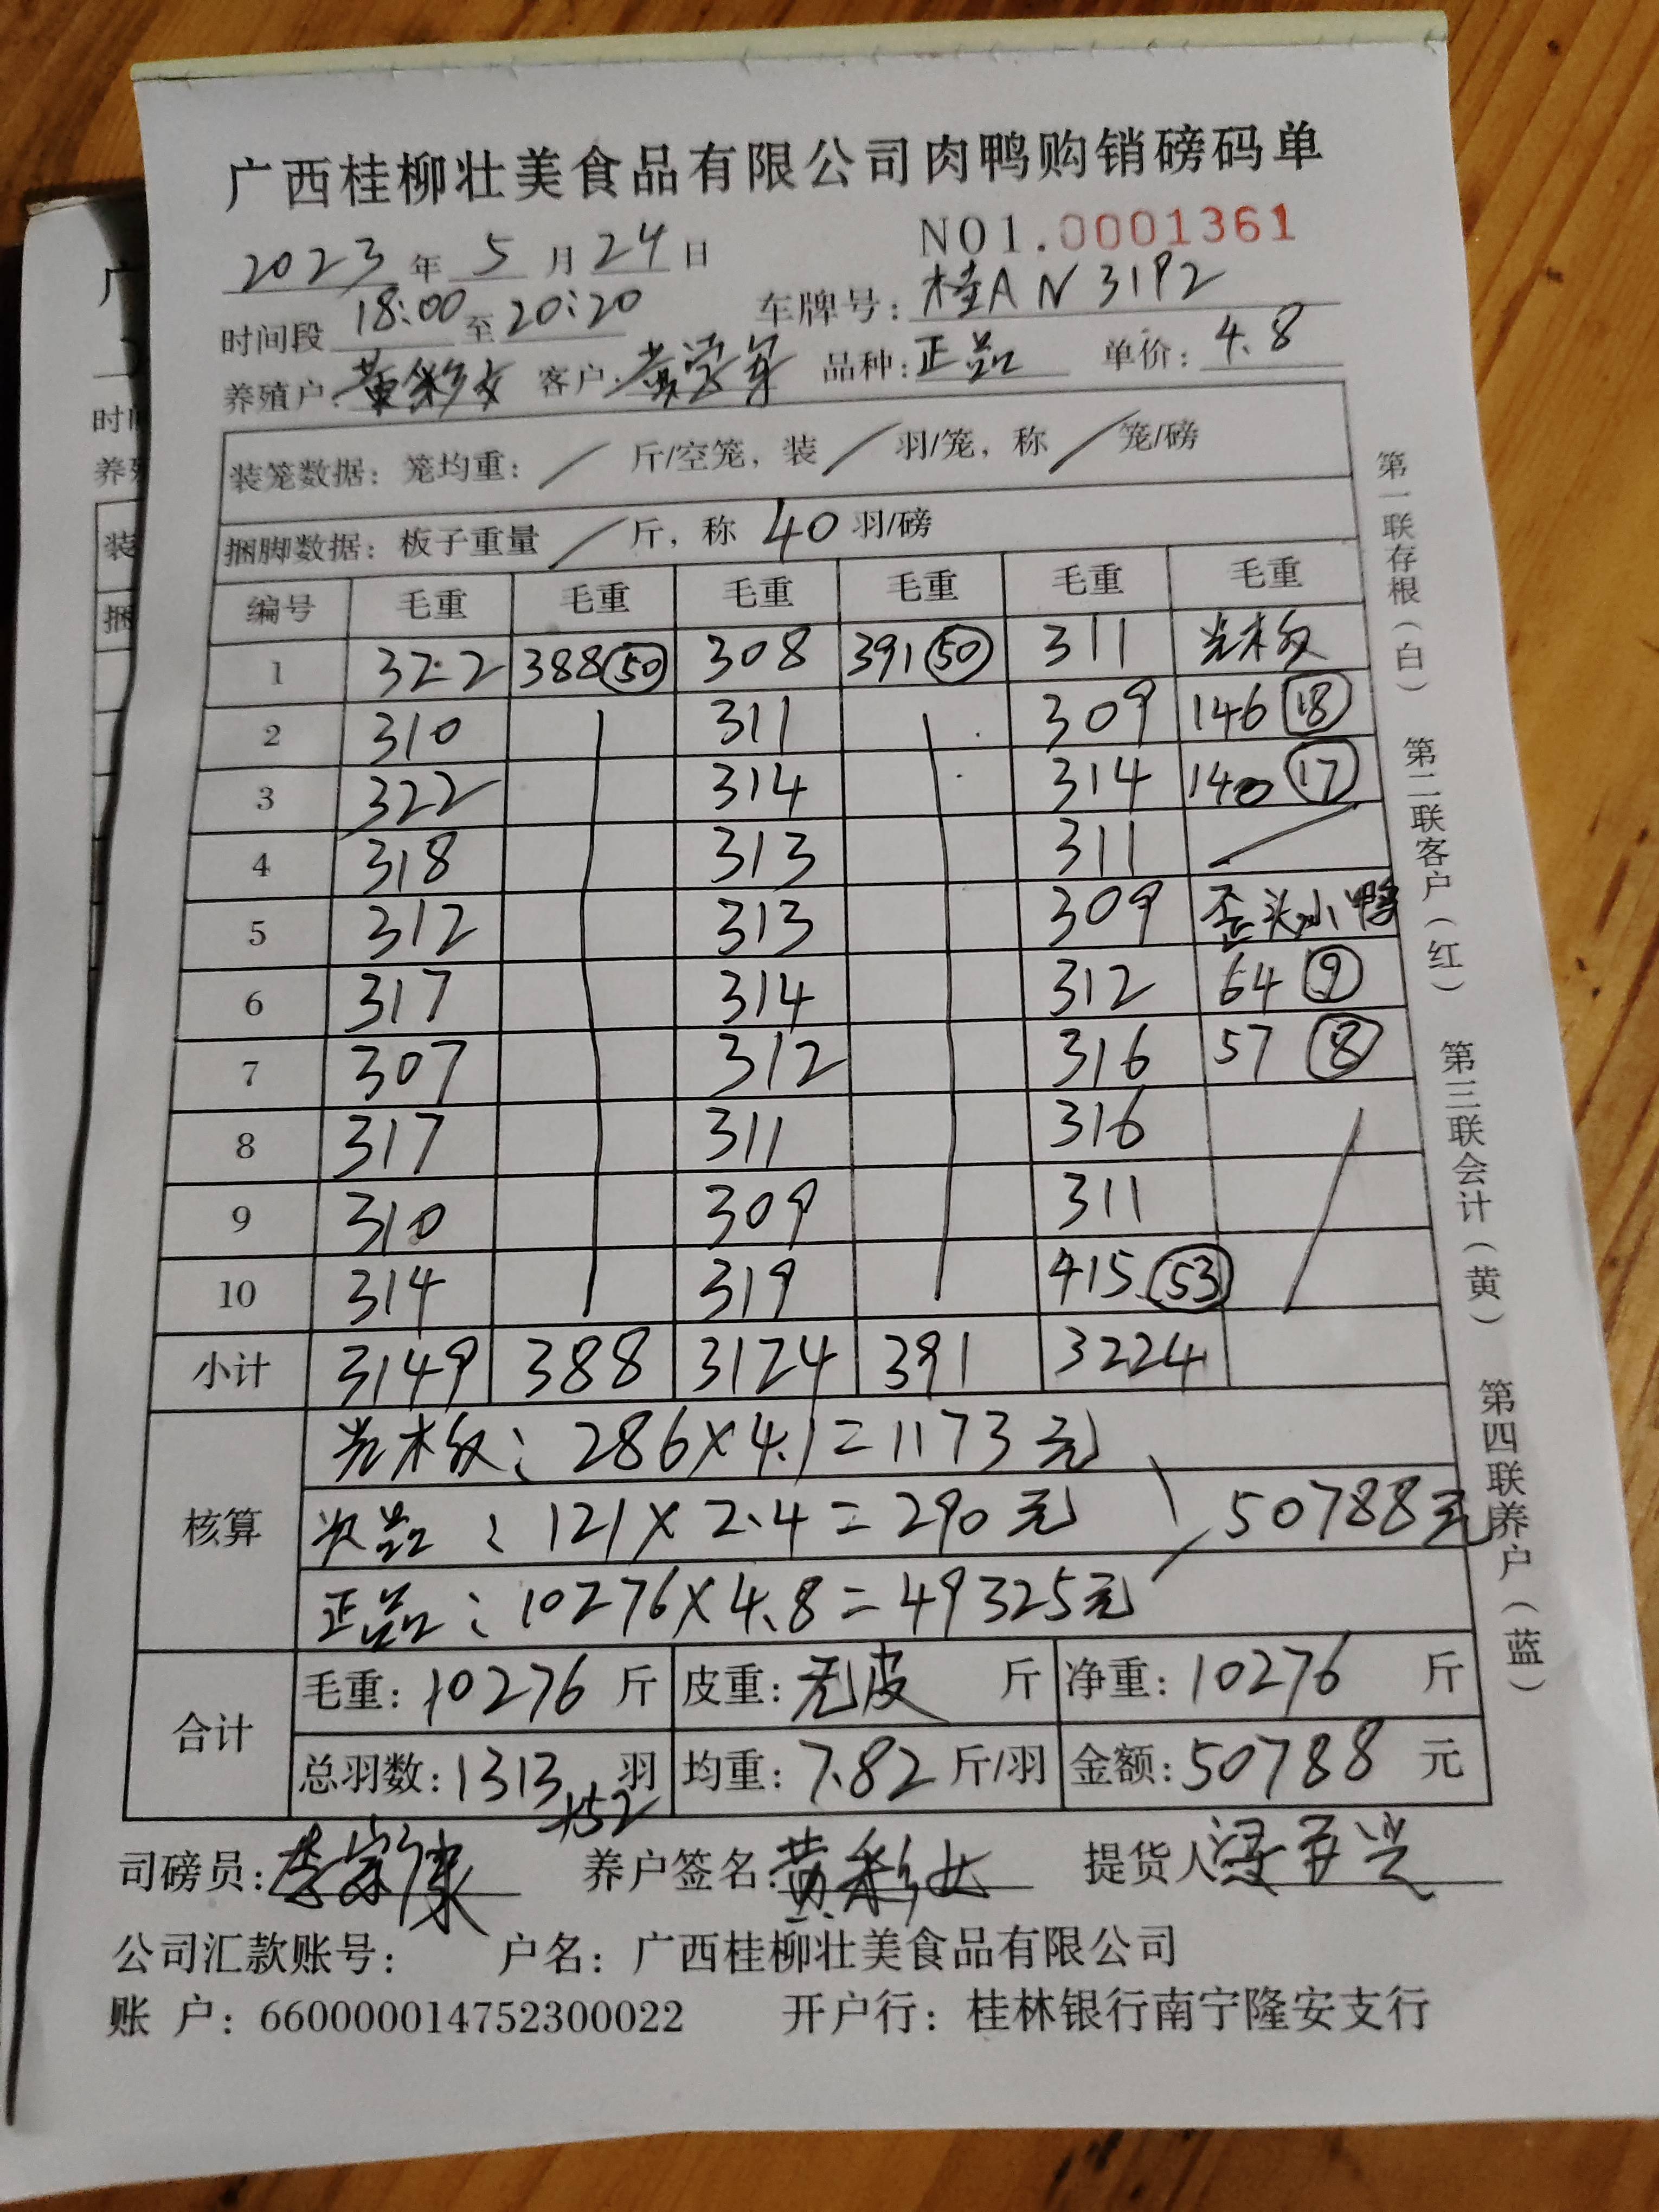 广西桂柳壮美食品有限公司肉鸭购销磅码单
NO1.0001361
2023年5月24日
时间段 18:00 至 20:20 车牌号: 桂A N 3192
养殖户: 黄彩女 客户: 黄学军 品种: 正品 单价: 4.8
装笼数据: 笼均重: / 斤/空笼, 装 / 羽/笼, 称 / 笼/磅
捆脚数据: 板子重量 / 斤, 称 40 羽/磅
编号 毛重 毛重 毛重 毛重 毛重 毛重
1 322 388 50 308 391 50 311 光木板
2 310 311 309 146 18
3 322 314 314 140 17
4 318 313 311
5 312 313 309 歪头小鸭
6 317 314 312 64 9
7 307 312 316 57 8
8 317 311 316
9 310 309 311
10 314 319 415 53
小计 3149 388 3124 391 3224
核算
光木板: 286×4.1=1173元
次品: 121×2.4=290元
50788元
正品: 10276×4.8=49325元
合计
毛重: 10276 斤 皮重: 无皮 斤 净重: 10276 斤
总羽数: 1313 羽 均重: 7.82 斤/羽 金额: 50788 元
+52
司磅员: 李宗康 养户签名: 黄彩女 提货人
公司汇款账号: 户名: 广西桂柳壮美食品有限公司
账 户: 660000014752300022 开户行: 桂林银行南宁隆安支行
第一联存根(白) 第二联客户(红) 第三联会计(黄) 第四联养户(蓝)
广
时
养
装
捆